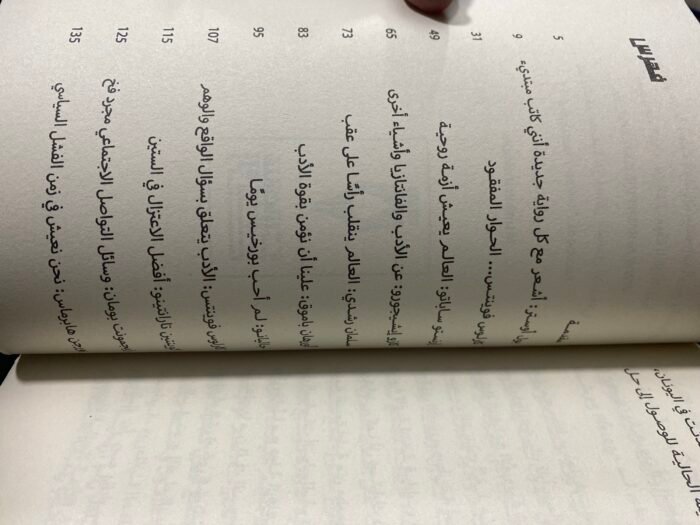 فهرس
5
أوستر: أشعر مع كل رواية جديدة أنني كاتب مبتدىء 9
فوينتس... الحوار المفقود 31
ساباتو: العالم يعيش أزمة روحية 49
إيشيجورو: عن الأدب والفانتازيا وأشياء أخرى 65
سلمان رشدي: العالم ينقلب رأسًا على عقب 73
أورهان باموق: علينا أن نؤمن بقوة الأدب 83
لم أحب بورخيس يومًا 95
كارلوس فوينتس: الأدب يتعلق بسؤال الواقع والوهم 107
تارانتينو: أفضل الاعتزال في الستين 115
بومان: وسائل التواصل الاجتماعي مجرد فخ 125
هابرماس: نحن نعيش في زمن الفشل السياسي 135
في اليونان،
الحالية للوصول إلى حل